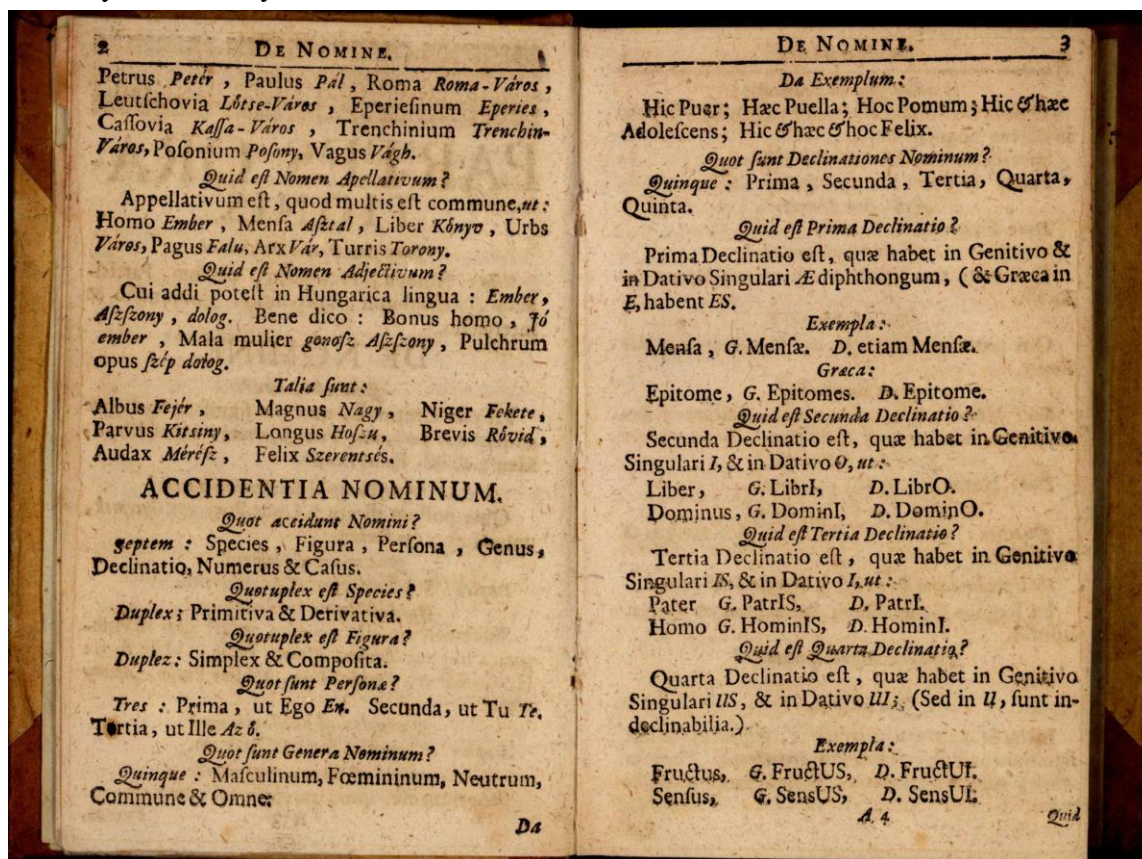 2 DE NOMINE.
Petrus Petér , Paulus Pál , Roma Roma-Város ,
Leutſchovia Lőtse-Város , Eperieſinum Eperies ,
Caſſovia Kaſſa-Város , Trenchinium Trenchin-
Város, Poſonium Poſony, Vagus Vágh.
Quid eſt Nomen Apellativum ?
Appellativum eſt , quod multis eſt commune,ut :
Homo Ember , Menſa Aſztal , Liber Kőnyv , Urbs
Város, Pagus Falu, Arx Vár, Turris Torony.
Quid eſt Nomen Adjectivum ?
Cui addi poteſt in Hungarica lingua : Ember ,
Aſzſzony , dolog. Bene dico : Bonus homo , Jó
ember , Mala mulier gonoſz Aſzſzony , Pulchrum
opus ſzép dolog.
Talia ſunt :
Albus Fejér , Magnus Nagy , Niger Fekete ,
Parvus Kitsiny , Longus Hoſzu , Brevis Rővid ,
Audax Méréſz , Felix Szerentsés.
ACCIDENTIA NOMINUM.
Quot accidunt Nomini ?
Septem : Species , Figura , Perſona , Genus ,
Declinatio, Numerus & Caſus.
Quotuplex eſt Species ?
Duplex ; Primitiva & Derivativa.
Quotuplex eſt Figura ?
Duplez : Simplex & Compoſita.
Quot ſunt Perſonæ ?
Tres : Prima , ut Ego En. Secunda , ut Tu Te.
Tertia , ut Ille Az ő.
Quot ſunt Genera Nominum ?
Quinque : Maſculinum, Fœmininum, Neutrum,
Commune & Omne:
Da
DE NOMINE. 3
Da Exemplum :
Hic Puer ; Hæc Puella ; Hoc Pomum ; Hic & hæc
Adoleſcens ; Hic & hæc & hoc Felix.
Quot ſunt Declinationes Nominum ?
Quinque : Prima , Secunda , Tertia , Quarta ,
Quinta.
Quid eſt Prima Declinatio ?
Prima Declinatio eſt , quæ habet in Genitivo &
in Dativo Singulari Æ diphthongum , ( & Græca in
E, habent ES.
Exempla :
Menſa , G. Menſæ. D. etiam Menſæ.
Græca :
Epitome , G. Epitomes. D. Epitome.
Quid eſt Secunda Declinatio ?
Secunda Declinatio eſt , quæ habet in Genitivo
Singulari I, & in Dativo O, ut :
Liber , G. LibrI, D. LibrO.
Dominus , G. DominI, D. DominO.
Quid eſt Tertia Declinatio ?
Tertia Declinatio eſt , quæ habet in Genitivo
Singulari IS, & in Dativo I, ut :
Pater G. PatrIS, D. PatrI.
Homo G. HominIS, D. HominI.
Quid eſt Quarta Declinatio ?
Quarta Declinatio eſt , quæ habet in Genitivo
Singulari US , & in Dativo UI ; (Sed in U , ſunt in-
declinabilia.)
Exempla :
Fructus, G. FructUS, D. FructUI.
Senſus, G. SensUS, D. SensUI.
A 4 Quid